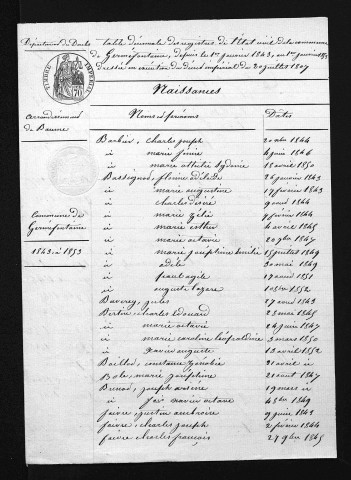 Département du Doubs
Table décennale des registres de l'état civil de la commune
de Germéfontaine, depuis le 1er janvier 1843, au 1er janvier 1853
dressée en exécution du décret impérial du 20 juillet 1807
TIMBRE IMPERIAL
Naissances
Arrondissement
de Baume
Commune de
Germéfontaine
1843 à 1853
Noms & prénoms Dates
Barbier, charles joseph 1844
id marie 4 juin 1846
id marie sydonie 18 avril 1850
Bassignot, adélaïde 26 janvier 1843
id marie augustine 17 février 1843
id charles 9 aout 1844
id marie zélie 9 février 1844
id marie esther 4 avril 1845
id marie octavie 20 9bre 1847
id marie joséphine 15 juillet 1849
id adèle 30 mai 1849
id 17 aout 1851
id auguste lazare 10 8bre 1852
Baverey, jules 27 aout 1843
Bertin, charles édouard 23 mai 1845
id marie octavie 24 juin 1847
id marie caroline léopoldine 3 mars 1850
id xavier auguste 13 avril 1852
constance 21 avril id
Bole, marie joséphine 21 aout 1847
joseph 19 mars id
id xavier octave 1849
faivre, justin ambroise 9 juin 1843
faivre, charles joseph 2 février 1844
faivre charles françois 27 9bre 1845